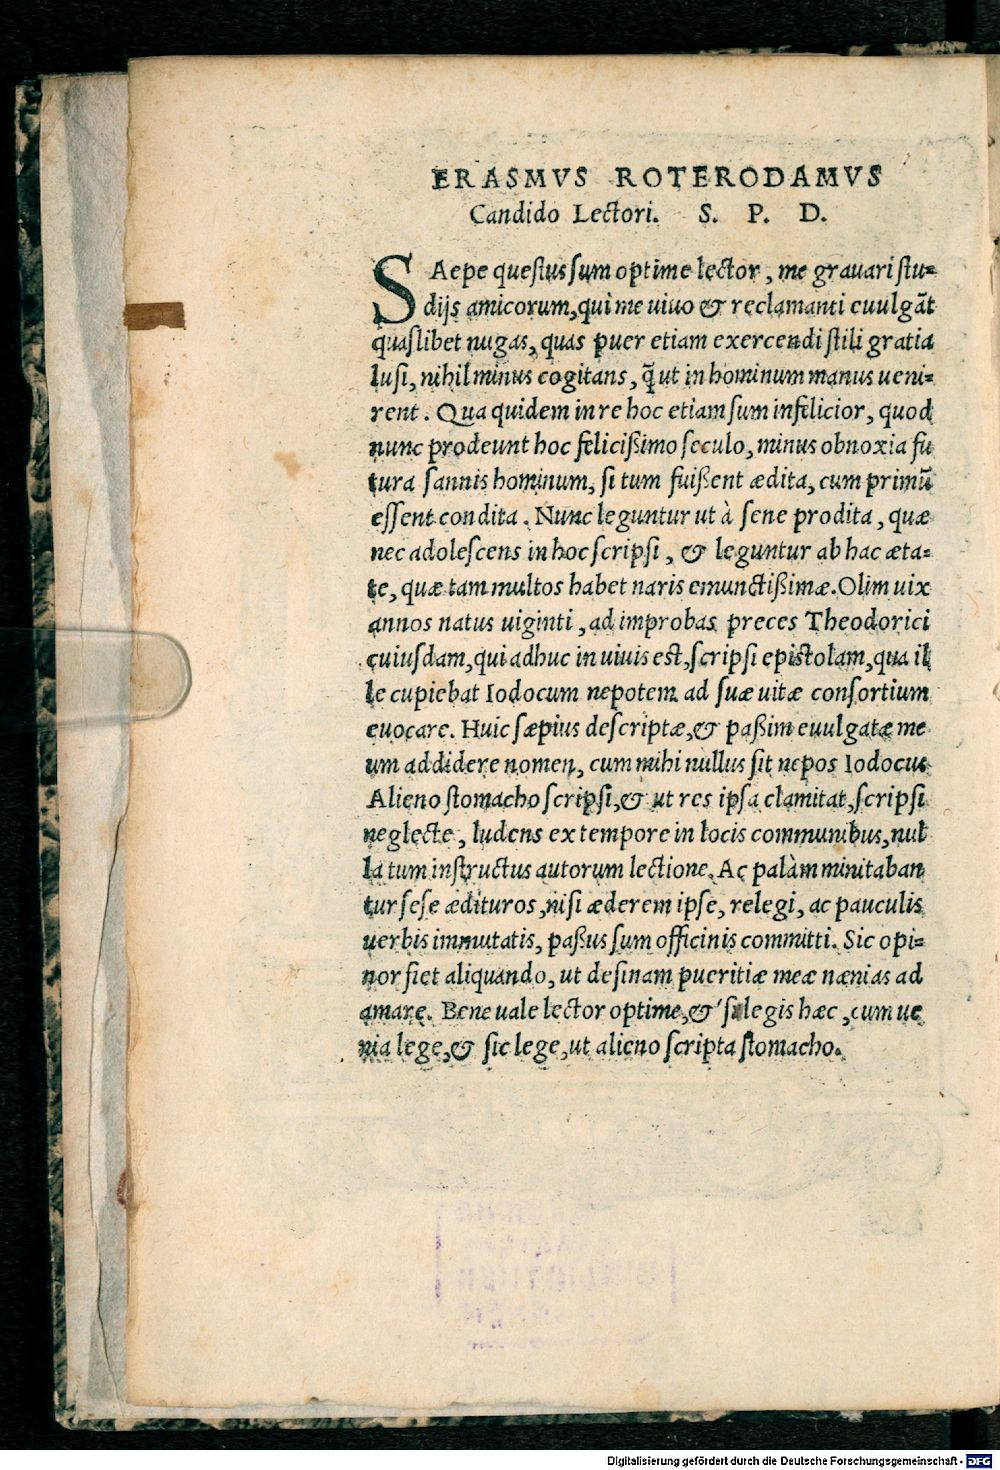 ERASMVS ROTERODAMVS
Candido Lectori. S. P. D.
SAepe questus sum optime lector, me grauari stu=
dijs amicorum, qui me uiuo & reclamanti euulgāt
quaslibet nugas, quas puer etiam exercendi stili gratia
lusi, nihil minus cogitans, q̃ ut in hominum manus ueni=
rent. Qua quidem in re hoc etiam sum infelicior, quod
nunc prodeunt hoc felicißimo seculo, minus obnoxia fu
tura sannis hominum, si tum fuißent ædita, cum primū
essent condita. Nunc leguntur ut à sene prodita, quæ
nec adolescens in hoc scripsi, & leguntur ab hac æta=
te, quæ tam multos habet naris emunctißimæ. Olim uix
annos natus uiginti, ad improbas preces Theodorici
cuiusdam, qui adhuc in uiuis est, scripsi epistolam, qua il
le cupiebat Iodocum nepotem ad suæ uitæ consortium
euocare. Huic sæpius descriptæ, & paßim euulgatæ me
um addidere nomen, cum mihi nullus sit nepos Iodocus
Alieno stomacho scripsi, & ut res ipsa clamitat, scripsi
neglecte, ludens ex tempore in locis communibus, nul
la tum instructus autorum lectione. Ac palàm minitaban
tur sese ædituros, nisi æderem ipse, relegi, ac pauculis
uerbis immutatis, paßus sum officinis committi. Sic opi=
nor fiet aliquando, ut desinam pueritiæ meæ nænias ad
amare. Bene uale lector optime, & si legis hæc, cum ue
nia lege, & sic lege, ut alieno scripta stomacho.
Digitalisierung gefördert durch die Deutsche Forschungsgemeinschaft - DFG